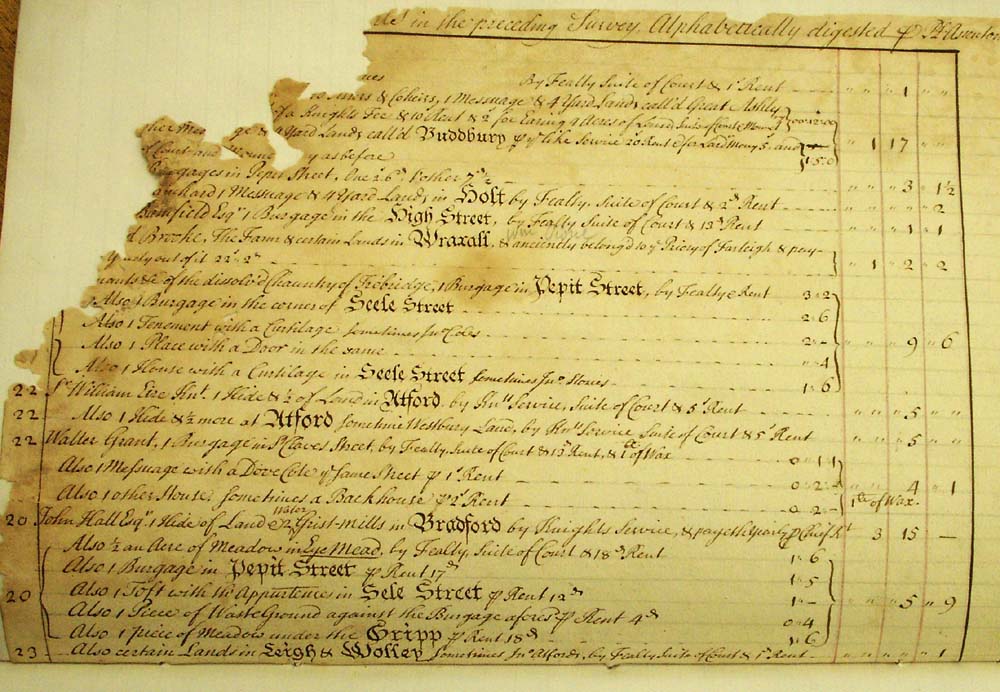 in the preceding Survey, Alphabetically digested
By Fealty Suite of Court & 1s Rent " " 1 " "
& Coheirs, 1 Messuage & 4 Yard Lands call'd Great Ashly
of a Knights Fee & 10s Rent & 2s for Earing 4 Acres of Land, Suite of Court &
& 4 Yard Lands call'd Buddbury p ye like Service 20s Rent & for Lard Mony 5s and " 1 17 "
of Court and as before 1 " 5 " 0
Burgages in Pepit Street, One 2s 6d, t'other 7d ½ " " 3 " 1½
1 Messuage & 4 Yard Lands, in Holt by Fealty, Suite of Court & 2s Rent " " " 2
Esqr 1 Burgage in the High Street, by Fealty Suite of Court & 13d Rent " " 1 " 1
Brooke, The Farm & certain Lands in Wraxall, & anciently belong'd to ye Priory of Farleigh & pay-
out of it 22s 2d " 1 " 2 " 2
of the dissolv'd Chauntry of Trebridge, 1 Burgage in Pepit Street, by Fealty & Rent 3 " 2
Also 1 Burgage in the corner of Seele Street 2 " 6
Also 1 Tenement with a Curtilage sometimes Jno Coles 2 " -
Also 1 Place with a Door in the same " " 4 " " 9 " 6
Also 1 House with a Curtilage in Seele Street sometimes Jno Stones 1 " 6
22 Sr William Eire Knt. 1 Hide & ½ of Land in Atford by Knts Service, Suite of Court & 5s Rent " " 5 " "
22 Also 1 Hide & ½ more at Atford sometime Westbury Land, by Knts Service Suite of Court & 5s Rent " " 5 " "
22 Walter Grant, 1 Burgage in St Claves Street, by Fealty, Suite of Court & 13d Rent, & 1 lb of Wax 0 " 1 " 1
Also 1 Messuage with a Dove Cote ye same Street p 1s Rent " " 4 " 1
Also 1 other House sometimes a Backhouse p 2s Rent 0 " 2 " - 1 lb of Wax
20 John Hall Esqr. 1 Hide of Land & 2 Water Grist-mills in Bradford by Knights Service, & payeth yearly p Chief Rt 3 15 —
Also ½ an Acre of Meadow in Eye Mead, by Fealty, Suite of Court & 18d Rent 1 " 6
Also 1 Burgage in Pepit Street p Rent 17d 1 " 5
20 Also 1 Toft with the Appurtences in Sele Street p Rent 12d 1 " - " " 5 " 9
Also 1 Piece of Waste Ground against the Burgage aforesd p Rent 4d 0 " 4
Also 1 piece of Meadow under the Gripp p Rent 18d 1 " 6
23 Also certain Lands in Leigh & Wolley sometimes Jno Atfords, by Fealty Suite of Court & 1d Rent " " " 1